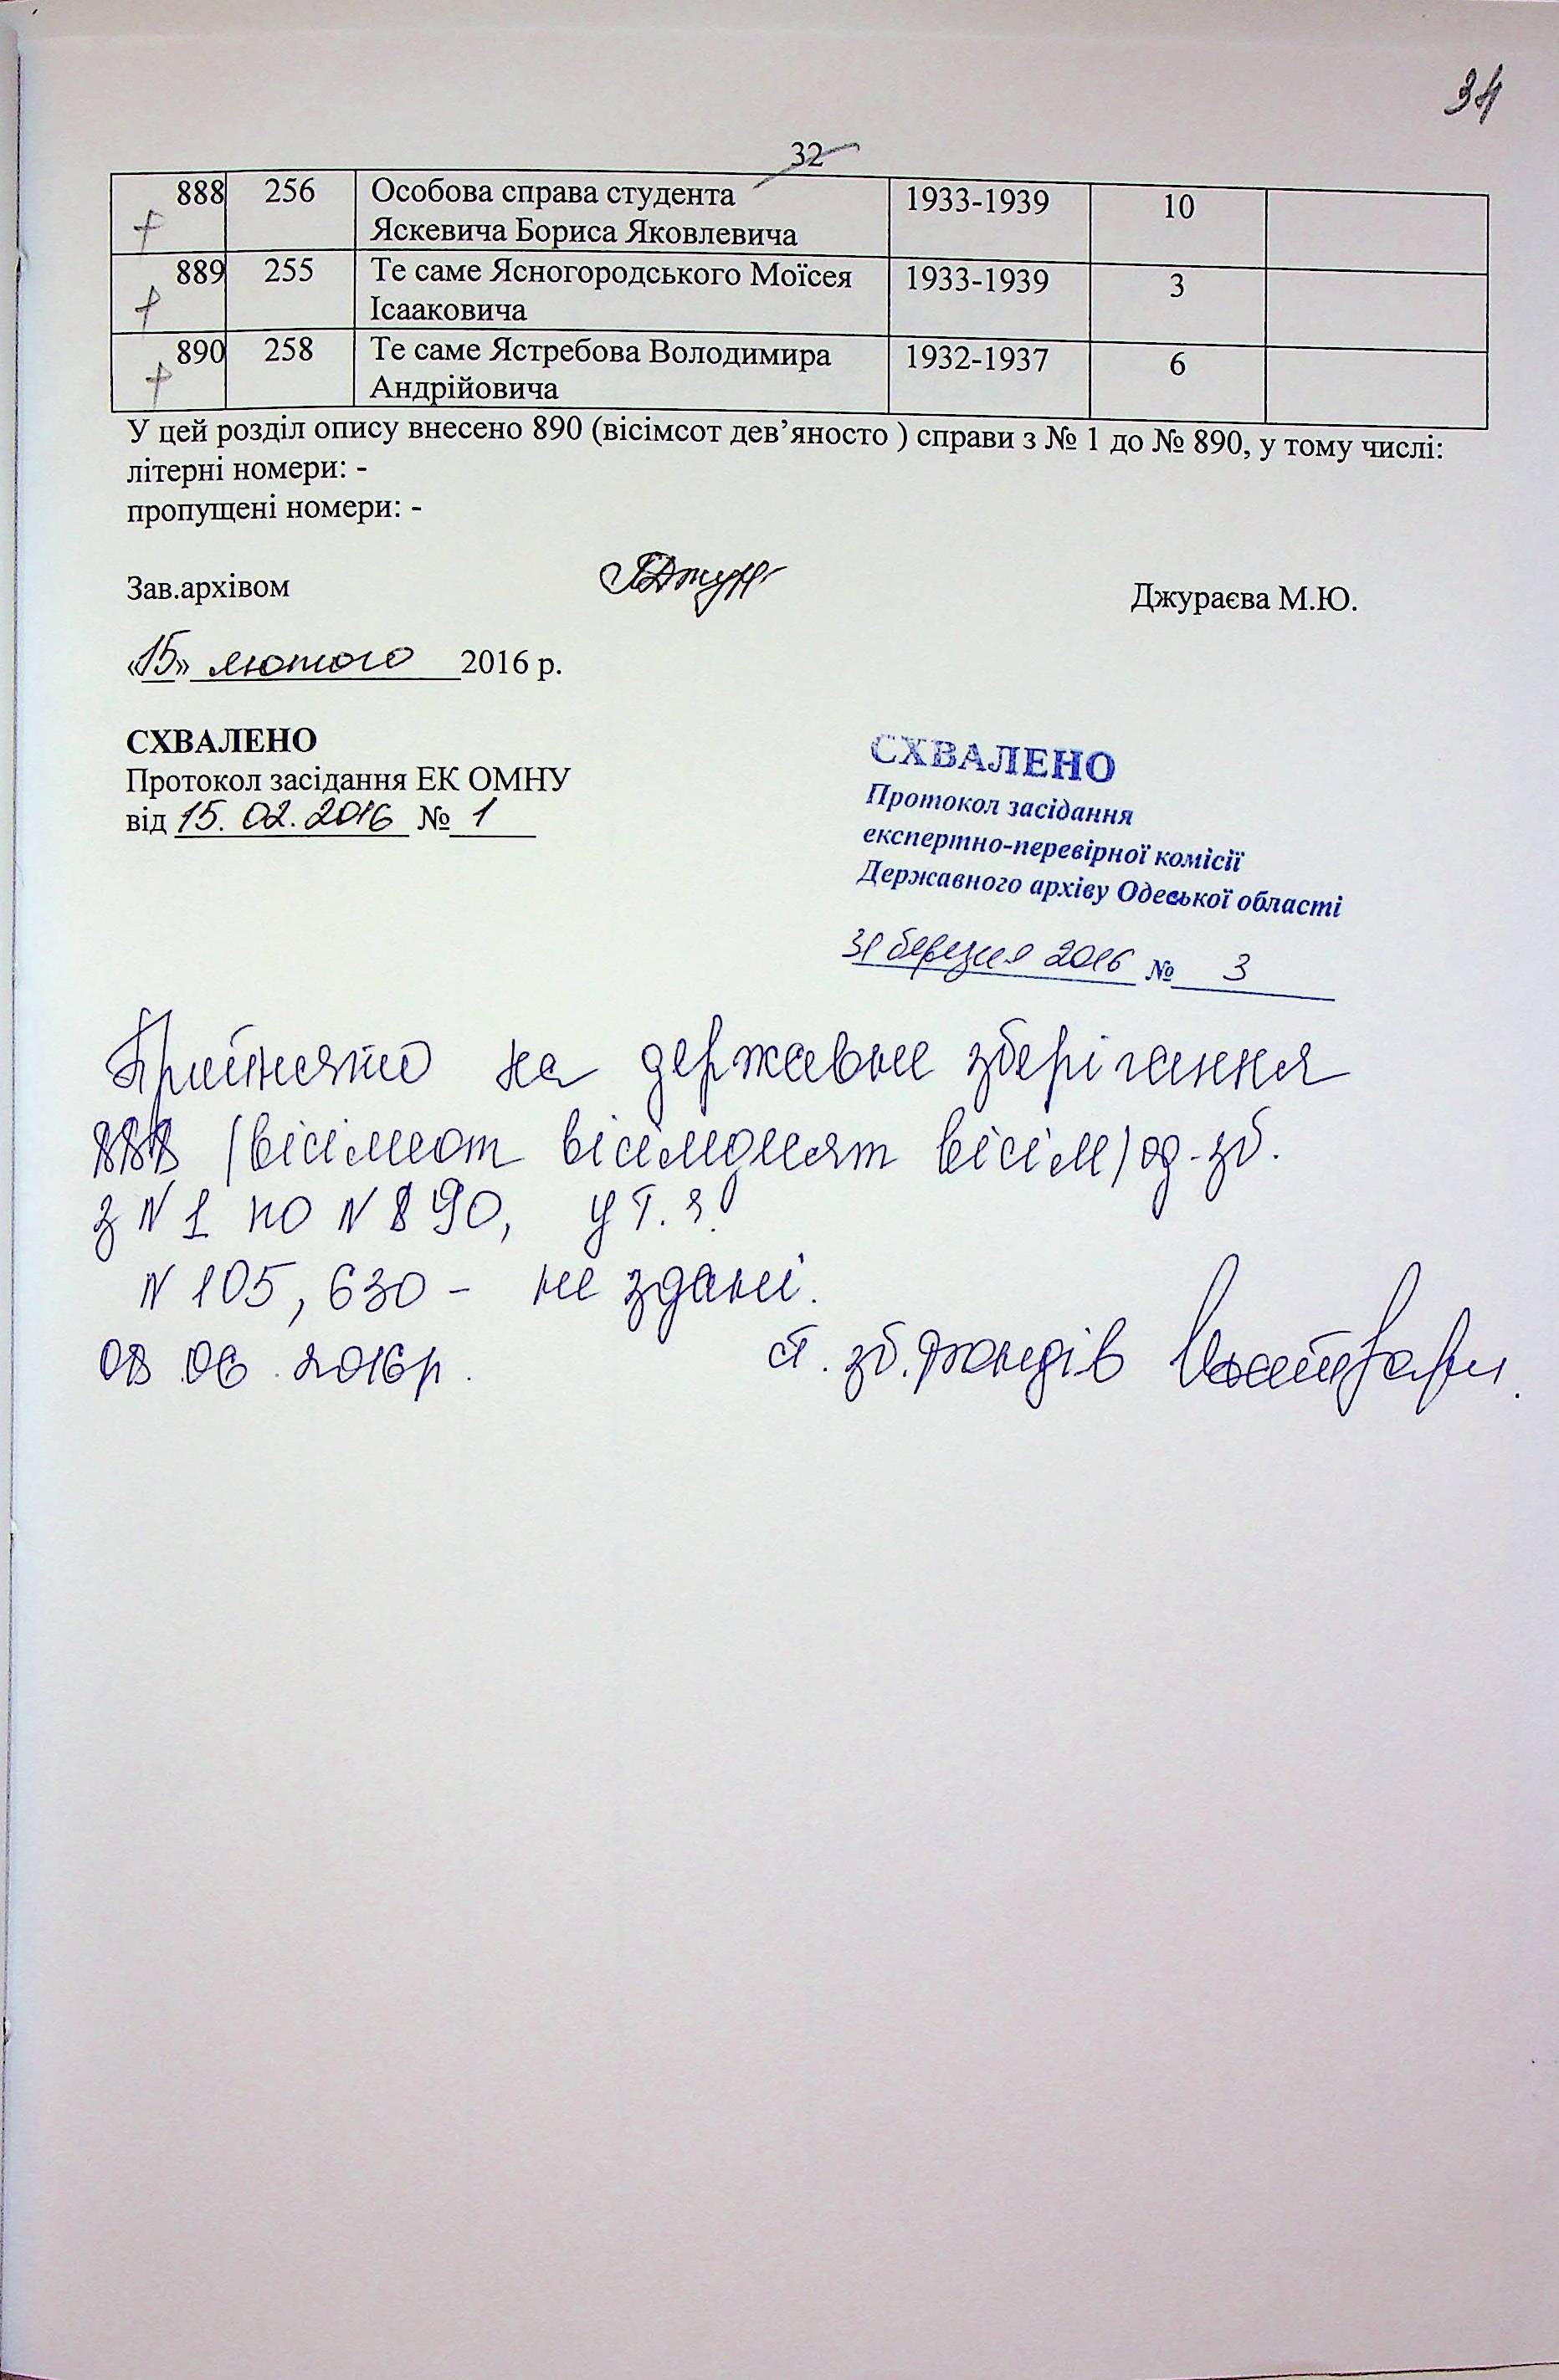 34
32
888 256 Особова справа студента 1933-1939 10
Яскевича Бориса Яковлевича
889 255 Те саме Ясногородського Моїсея 1933-1939 3
Ісааковича
890 258 Те саме Ястребова Володимира 1932-1937 6
Андрійовича
У цей розділ опису внесено 890 (вісімсот дев’яносто ) справи з № 1 до № 890, у тому числі:
літерні номери: -
пропущені номери: -
Зав.архівом Джураєва М.Ю.
«15» лютого 2016 р.
СХВАЛЕНО
Протокол засідання ЕК ОМНУ
від 15. 02. 2016 № 1
СХВАЛЕНО
Протокол засідання
експертно-перевірної комісії
Державного архіву Одеської області
31 березня 2016 № 3
Прийнято на державне зберігання
888 (вісімсот вісімдесят вісім) од. зб.
з N 1 по N 890, у т. ч.
N 105, 630 - не здані.
08.06.2016р.
ст. зб. фондів